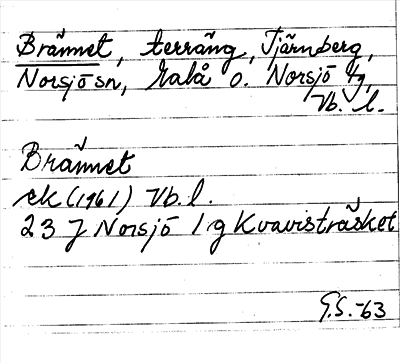 Brännet, terräng, Tjärnberg,
Norsjö sn, Malå o. Norsjö tg,
Vb. l.
Brännet
ek (1961) Vb. l.
23 J Norsjö 1 g Kvavisträsket
G.S. -63